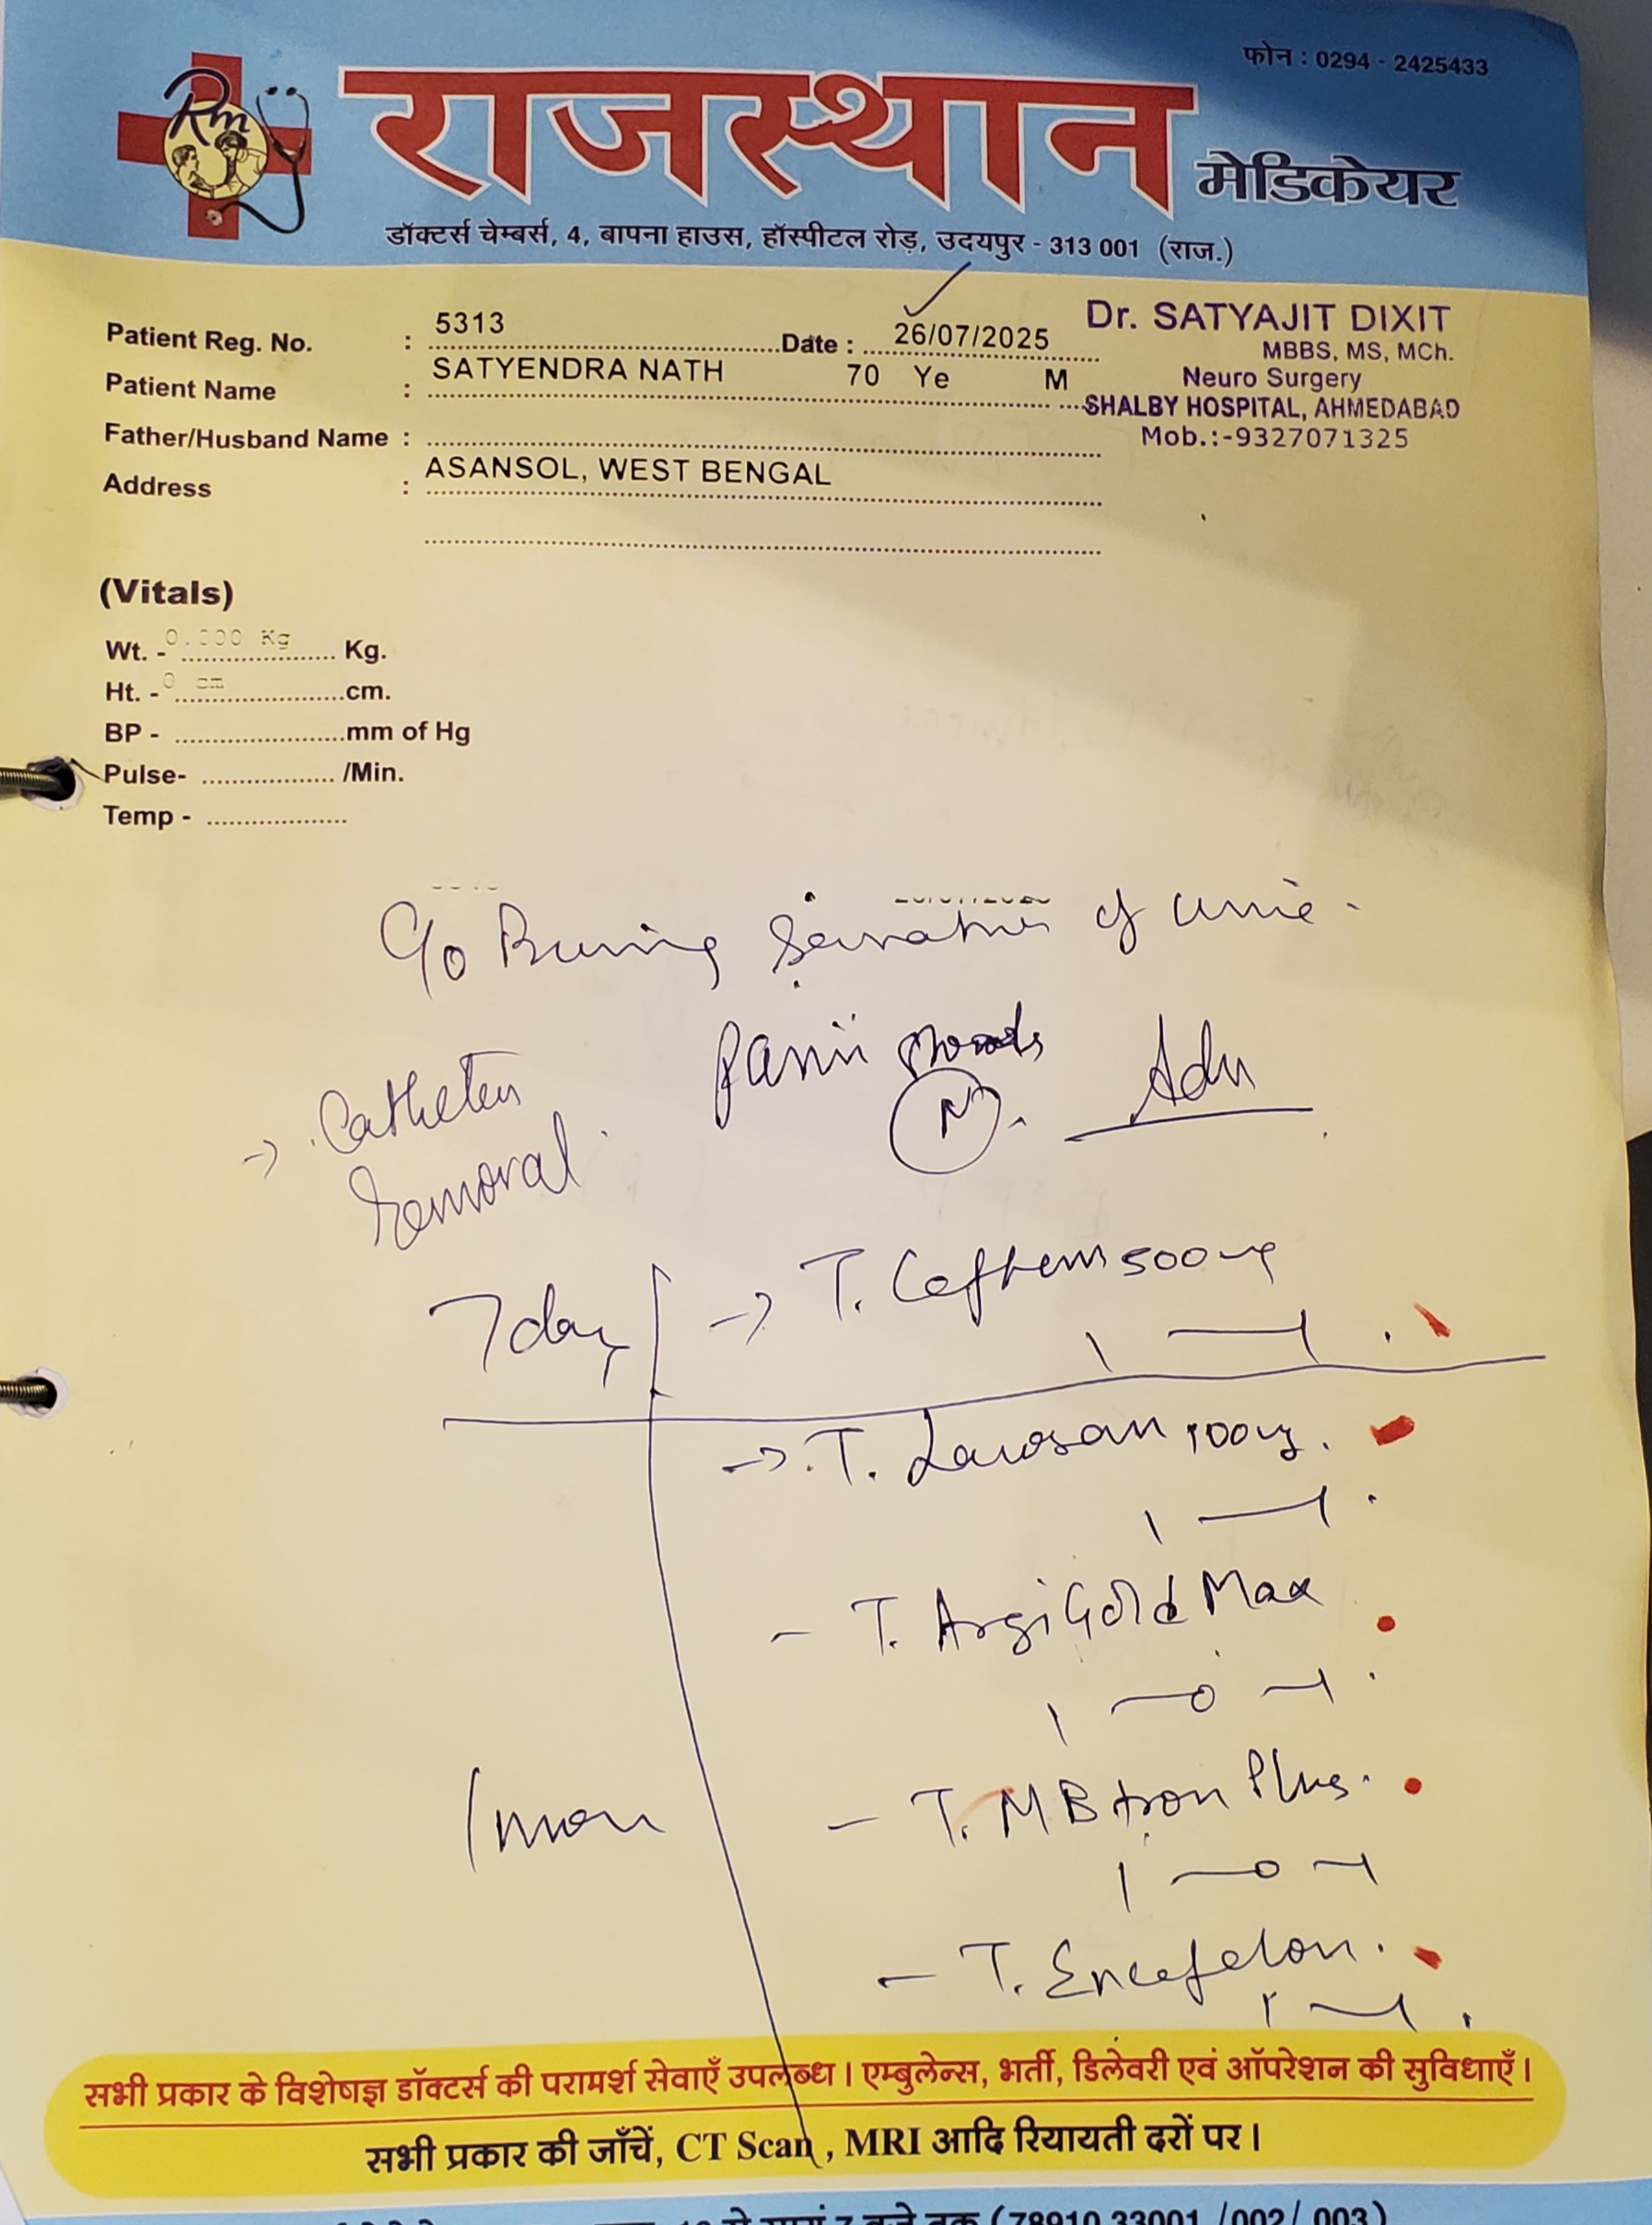 फोन : 0294 - 2425433
Rm
राजस्थान मेडिकेयर
डॉक्टर्स चेम्बर्स, 4, बापना हाउस, हॉस्पीटल रोड़, उदयपुर - 313 001 (राज.)
Dr. SATYAJIT DIXIT
MBBS, MS, MCh.
Neuro Surgery
SHALBY HOSPITAL, AHMEDABAD
Mob.:-9327071325
Patient Reg. No. : 5313 Date : 26/07/2025
Patient Name : SATYENDRA NATH 70 Ye M
Father/Husband Name :
Address : ASANSOL, WEST BENGAL
(Vitals)
Wt. - 0.000 Kg Kg.
Ht. - 0 cm cm.
BP - mm of Hg
Pulse- /Min.
Temp -
C/o Burning Sensation of urine.
N Adv
→ Catheter
removal.
7 day → T. 500mg
1 — 1
→ T. 100mg.
1 — 1
- T. ArgiGold Max
1 — 0 — 1
1 mon - T. Plus.
1 — 0 — 1
- T. Encefelon.
1 — 1
सभी प्रकार के विशेषज्ञ डॉक्टर्स की परामर्श सेवाएँ उपलब्ध। एम्बुलेन्स, भर्ती, डिलेवरी एवं ऑपरेशन की सुविधाएँ।
सभी प्रकार की जाँचें, CT Scan, MRI आदि रियायती दरों पर।
(78910 33001 /002/ 003)